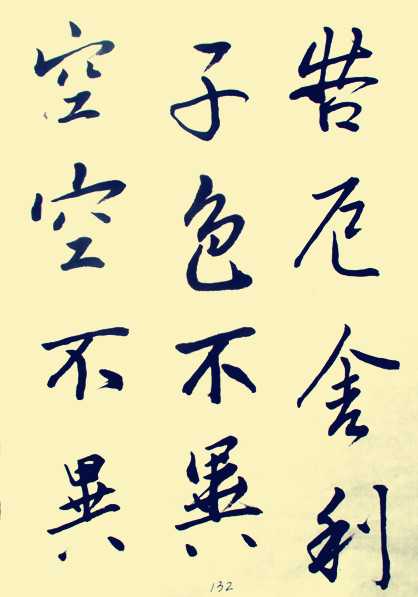 苦厄舍利
子色不異
空空不異
132